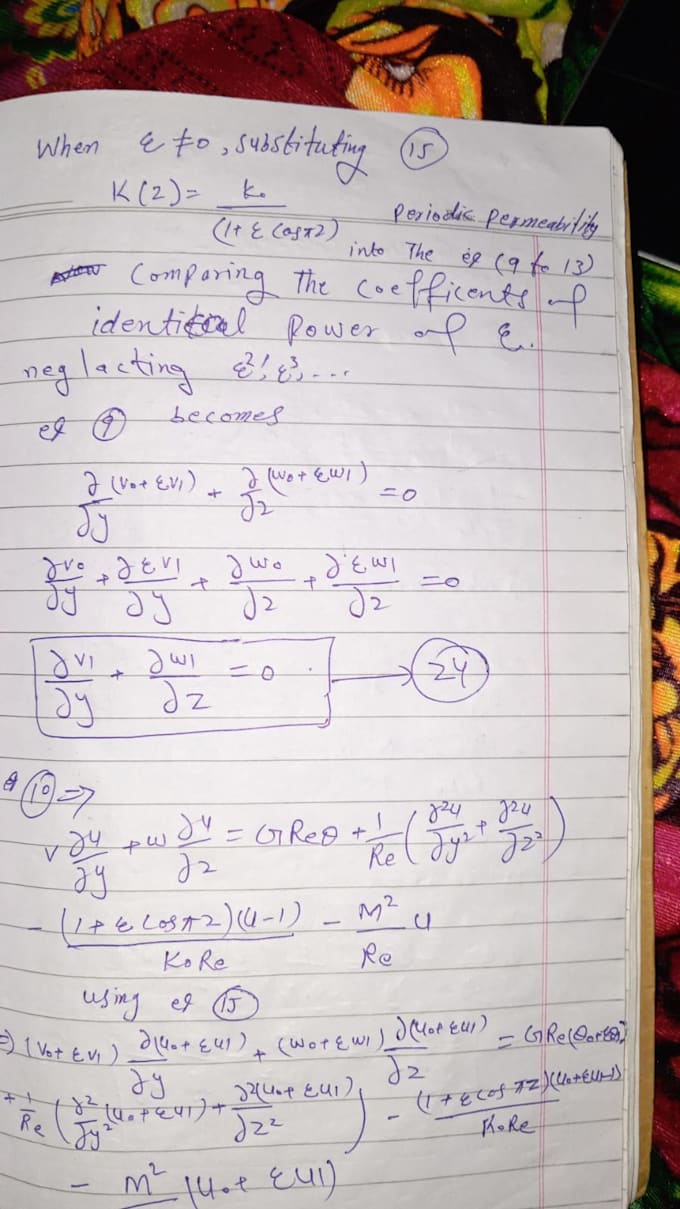 When ε ≠ 0, substituting (15)
K(z) = k₀ / (1+ ε Cosπz) Periodic Permeability
into The eq (9 to 13)
Comparing The coefficents of
identical Power of ε.
neglacting ε², ε³, ...
eq (9) becomes
∂(v₀+εv₁)/∂y + ∂(w₀+εw₁)/∂z = 0
∂v₀/∂y + ∂εv₁/∂y + ∂w₀/∂z + ∂εw₁/∂z = 0
∂v₁/∂y + ∂w₁/∂z = 0 → (24)
(10) ⇒
v ∂u/∂y + w ∂u/∂z = GReθ + 1/Re (∂²u/∂y² + ∂²u/∂z²)
- (1+ε Cosπz)(u-1)/K₀Re - M²/Re u
using eq (15)
⇒ (v₀+εv₁) ∂(u₀+εu₁)/∂y + (w₀+εw₁) ∂(u₀+εu₁)/∂z = GRe(θ₀+εθ₁)
+ 1/Re (∂²/∂y² (u₀+εu₁) + ∂²(u₀+εu₁)/∂z²) - (1+εcos πz)(u₀+εu₁-1)/K₀Re
- M² (u₀+εu₁)